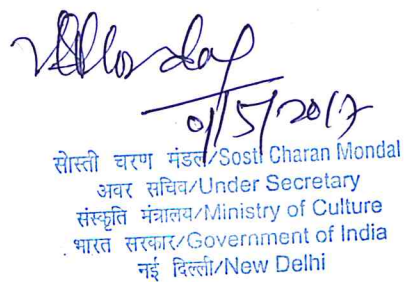 SCMondal
01/5/2017
सोस्ती चरण मंडल/Sosti Charan Mondal
अवर सचिव/Under Secretary
संस्कृति मंत्रालय/Ministry of Culture
भारत सरकार/Government of India
नई दिल्ली/New Delhi